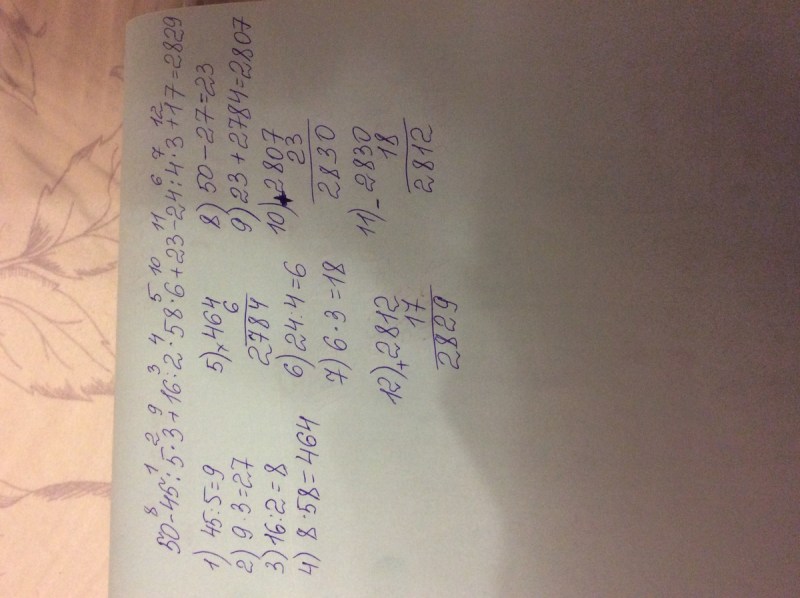 50-45:5·3+16:2·58·6+23-24:4·3+17=2829
8 1 2 9 3 4 5 10 11 6 7 12
1) 45:5=9
2) 9·3=27
3) 16:2=8
4) 8·58=464
5) × 464
6
2784
6) 24:4=6
7) 6·3=18
8) 50-27=23
9) 23+2784=2807
10) + 2807
23
2830
11) - 2830
18
2812
12) + 2812
17
2829